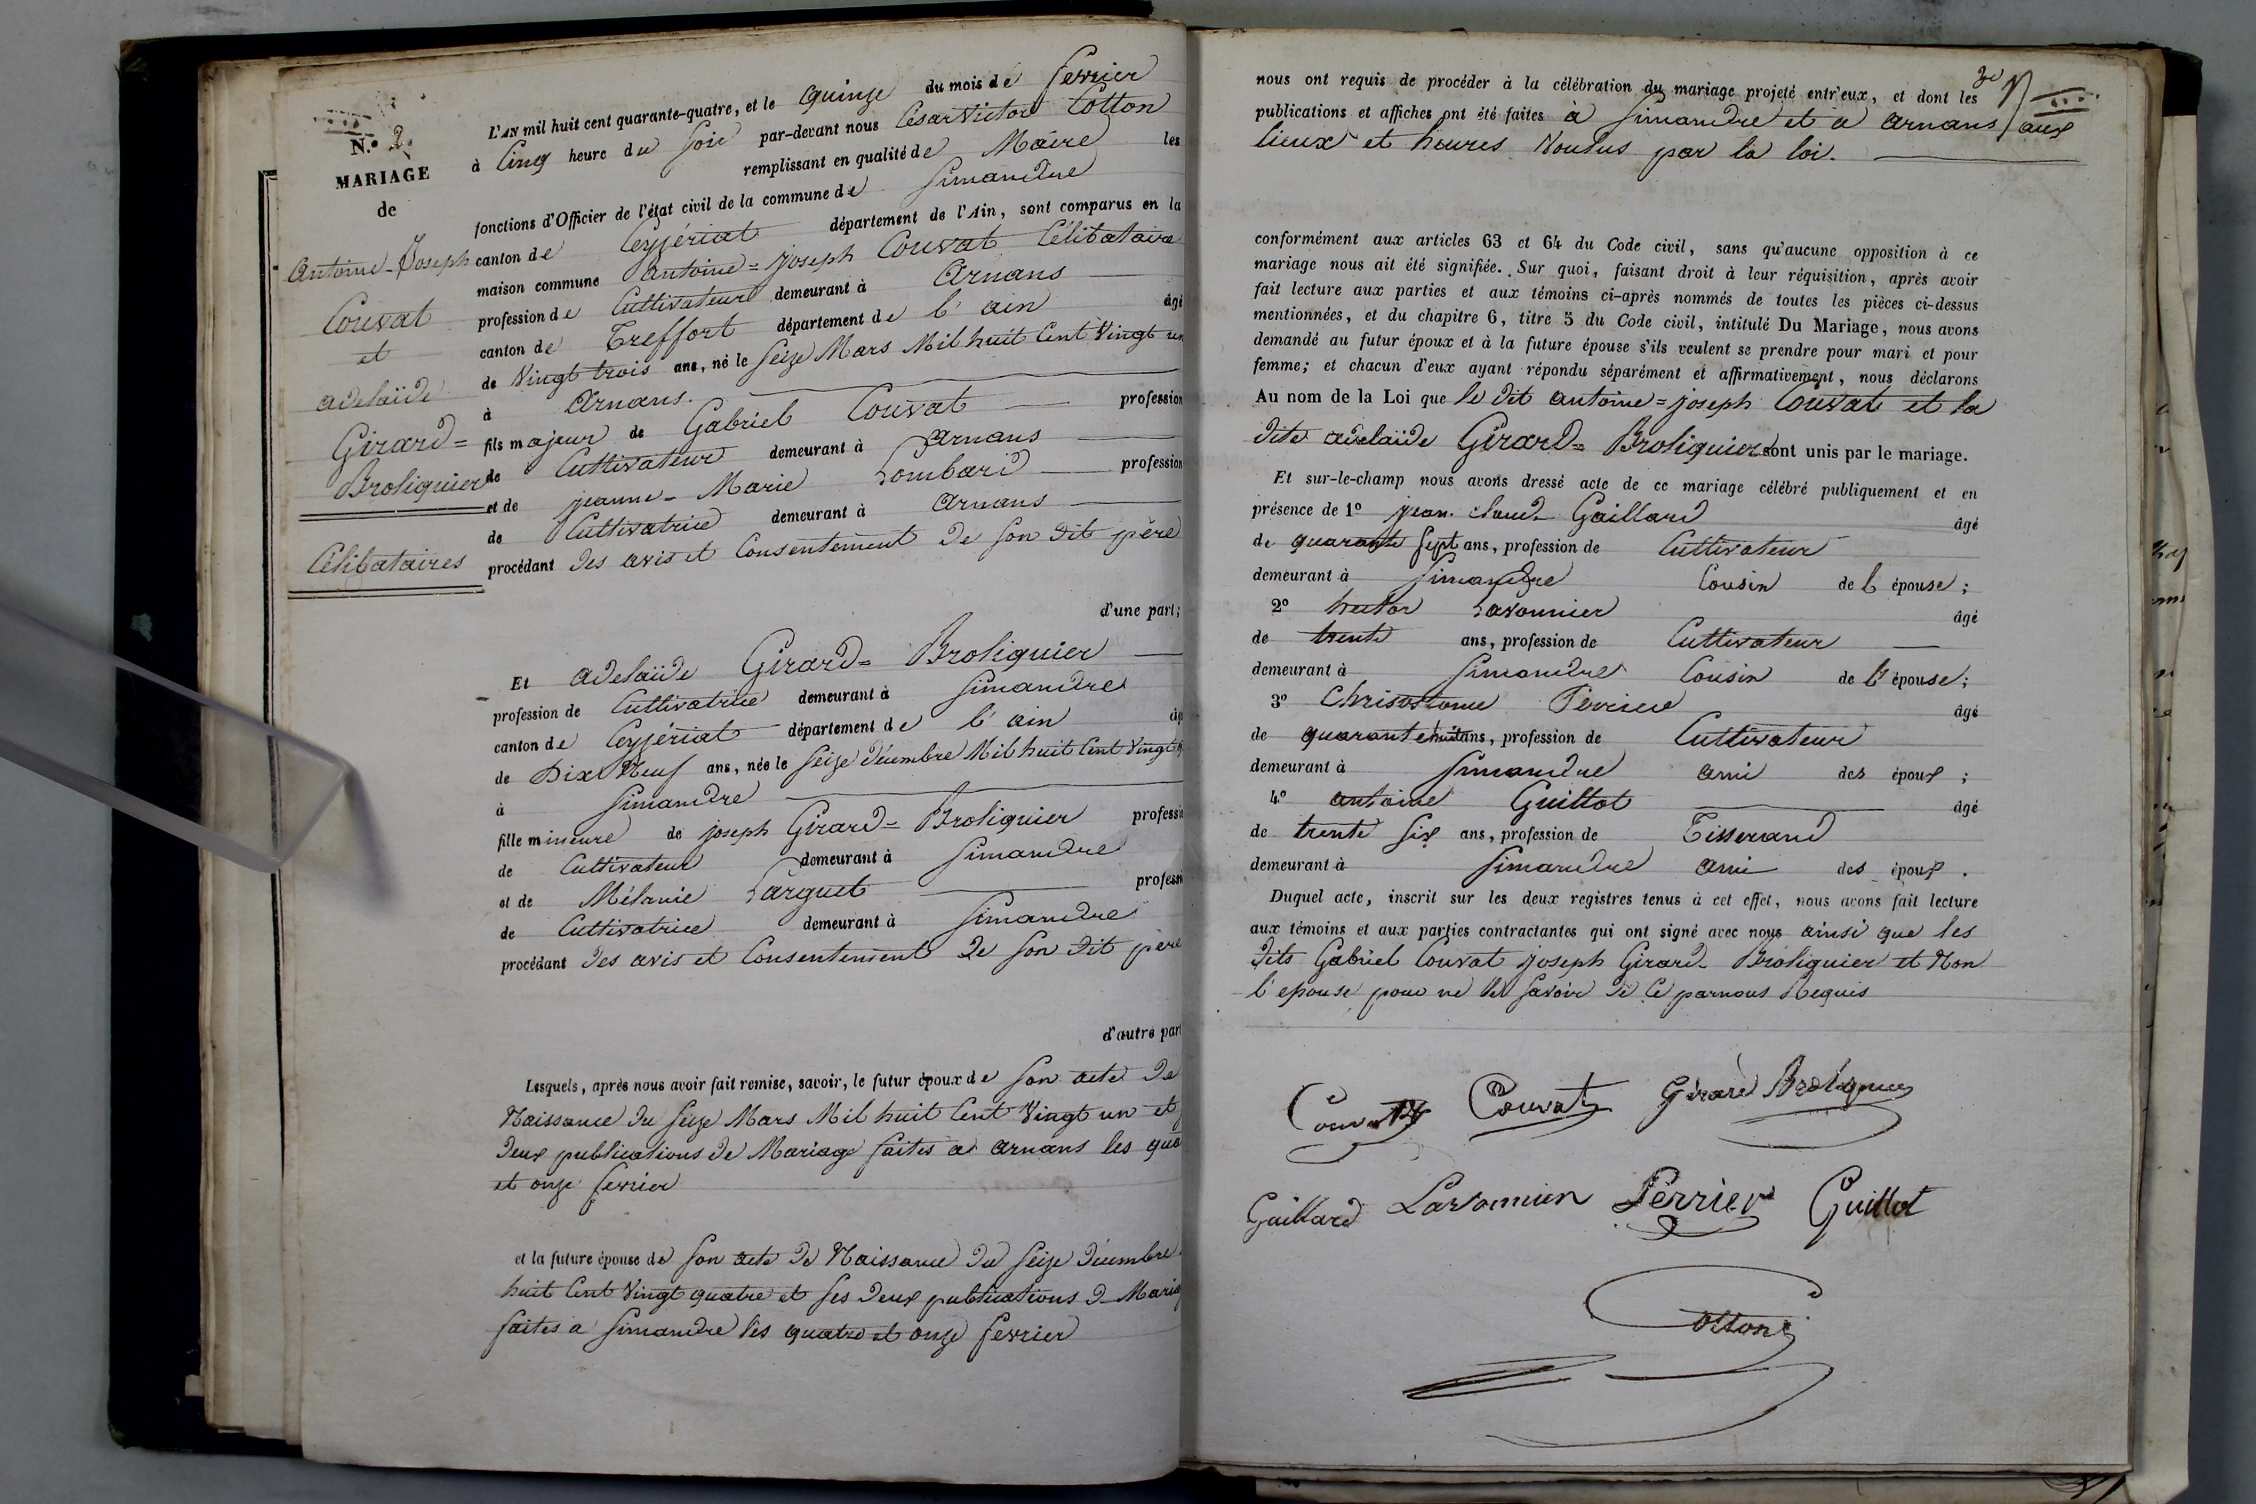 N.º 2.
MARIAGE
de
Antoine-Joseph
Couvat
et
adelaïde
Girard=
Broliquier
Célibataires
L'AN mil huit cent quarante-quatre, et le quinze du mois de fevrier
à Cinq heure du soir par-devant nous César Victor Cotton
remplissant en qualité de Maire les
fonctions d'Officier de l'état civil de la commune de Simandre
canton de Ceyzériat département de l'Ain, sont comparus en la
maison commune antoine=joseph Couvat Célibataire
profession de Cultivateur demeurant à Arnans
canton de Treffort département de l'ain âgé
de Vingt trois ans, né le seize Mars Mil huit Cent Vingt un
à Arnans.
fils majeur de Gabriel Couvat profession
de Cultivateur demeurant à Arnans
et de jeanne-Marie Lombard profession
de Cultivatrice demeurant à Arnans
procédant des avis et Consentement de son dit père
d'une part;
Et adelaïde Girard=Broliquier
profession de Cultivatrice demeurant à Simandre
canton de Ceyzériat département de l'ain âg
de Dix Neuf ans, née le seize décembre Mil huit Cent Vingt q
à Simandre
fille mineure de joseph Girard=Broliquier professio
de Cultivateur demeurant à Simandre
et de Mélanie Larguet professi
de Cultivatrice demeurant à Simandre
procédant des avis et Consentement de son dit père
d'autre part
Lesquels, après nous avoir fait remise, savoir, le futur époux de son acte de
Naissance du seize Mars Mil huit Cent Vingt un et
deux publications de Mariage faites a arnans les qua
et onze fevrier
et la future épouse de son acte de Naissance du seize décembre
huit Cent Vingt quatre et ses deux publications de Mariag
faites a Simandre les quatre et onze fevrier
nous ont requis de procéder à la célébration du mariage projeté entr'eux, et dont les
publications et affiches ont été faites à Simandre et a arnans aux
lieux et heures Voulus par la loi.
conformément aux articles 63 et 64 du Code civil, sans qu'aucune opposition à ce
mariage nous ait été signifiée. Sur quoi, faisant droit à leur réquisition, après avoir
fait lecture aux parties et aux témoins ci-après nommés de toutes les pièces ci-dessus
mentionnées, et du chapitre 6, titre 5 du Code civil, intitulé Du Mariage, nous avons
demandé au futur époux et à la future épouse s'ils veulent se prendre pour mari et pour
femme; et chacun d'eux ayant répondu séparément et affirmativement, nous déclarons
Au nom de la Loi que le dit antoine=joseph Couvat et la
dite adelaïde Girard=Broliquier sont unis par le mariage.
Et sur-le-champ nous avons dressé acte de ce mariage célébré publiquement et en
présence de 1º jean-claude Gaillard âgé
de quarante sept ans, profession de Cultivateur
demeurant à Simandre Cousin de l'épouse;
2º hector Lavonnier âgé
de trente ans, profession de Cultivateur
demeurant à Simandre Cousin de l'épouse;
3º Chrisostome Perrier âgé
de quarante huit ans, profession de Cultivateur
demeurant à Simandre ami des époux;
4º antoine Guillot âgé
de trente six ans, profession de Tisserand
demeurant à Simandre ami des époux.
Duquel acte, inscrit sur les deux registres tenus à cet effet, nous avons fait lecture
aux témoins et aux parties contractantes qui ont signé avec nous ainsi que les
dits Gabriel Couvat joseph Girard-Broliquier et Non
l'épouse pour ne le savoir de Ce par nous Requis
Couvat Couvat Girard Broliquier
Gaillard Lavonnier Perrier Guillot
Cotton